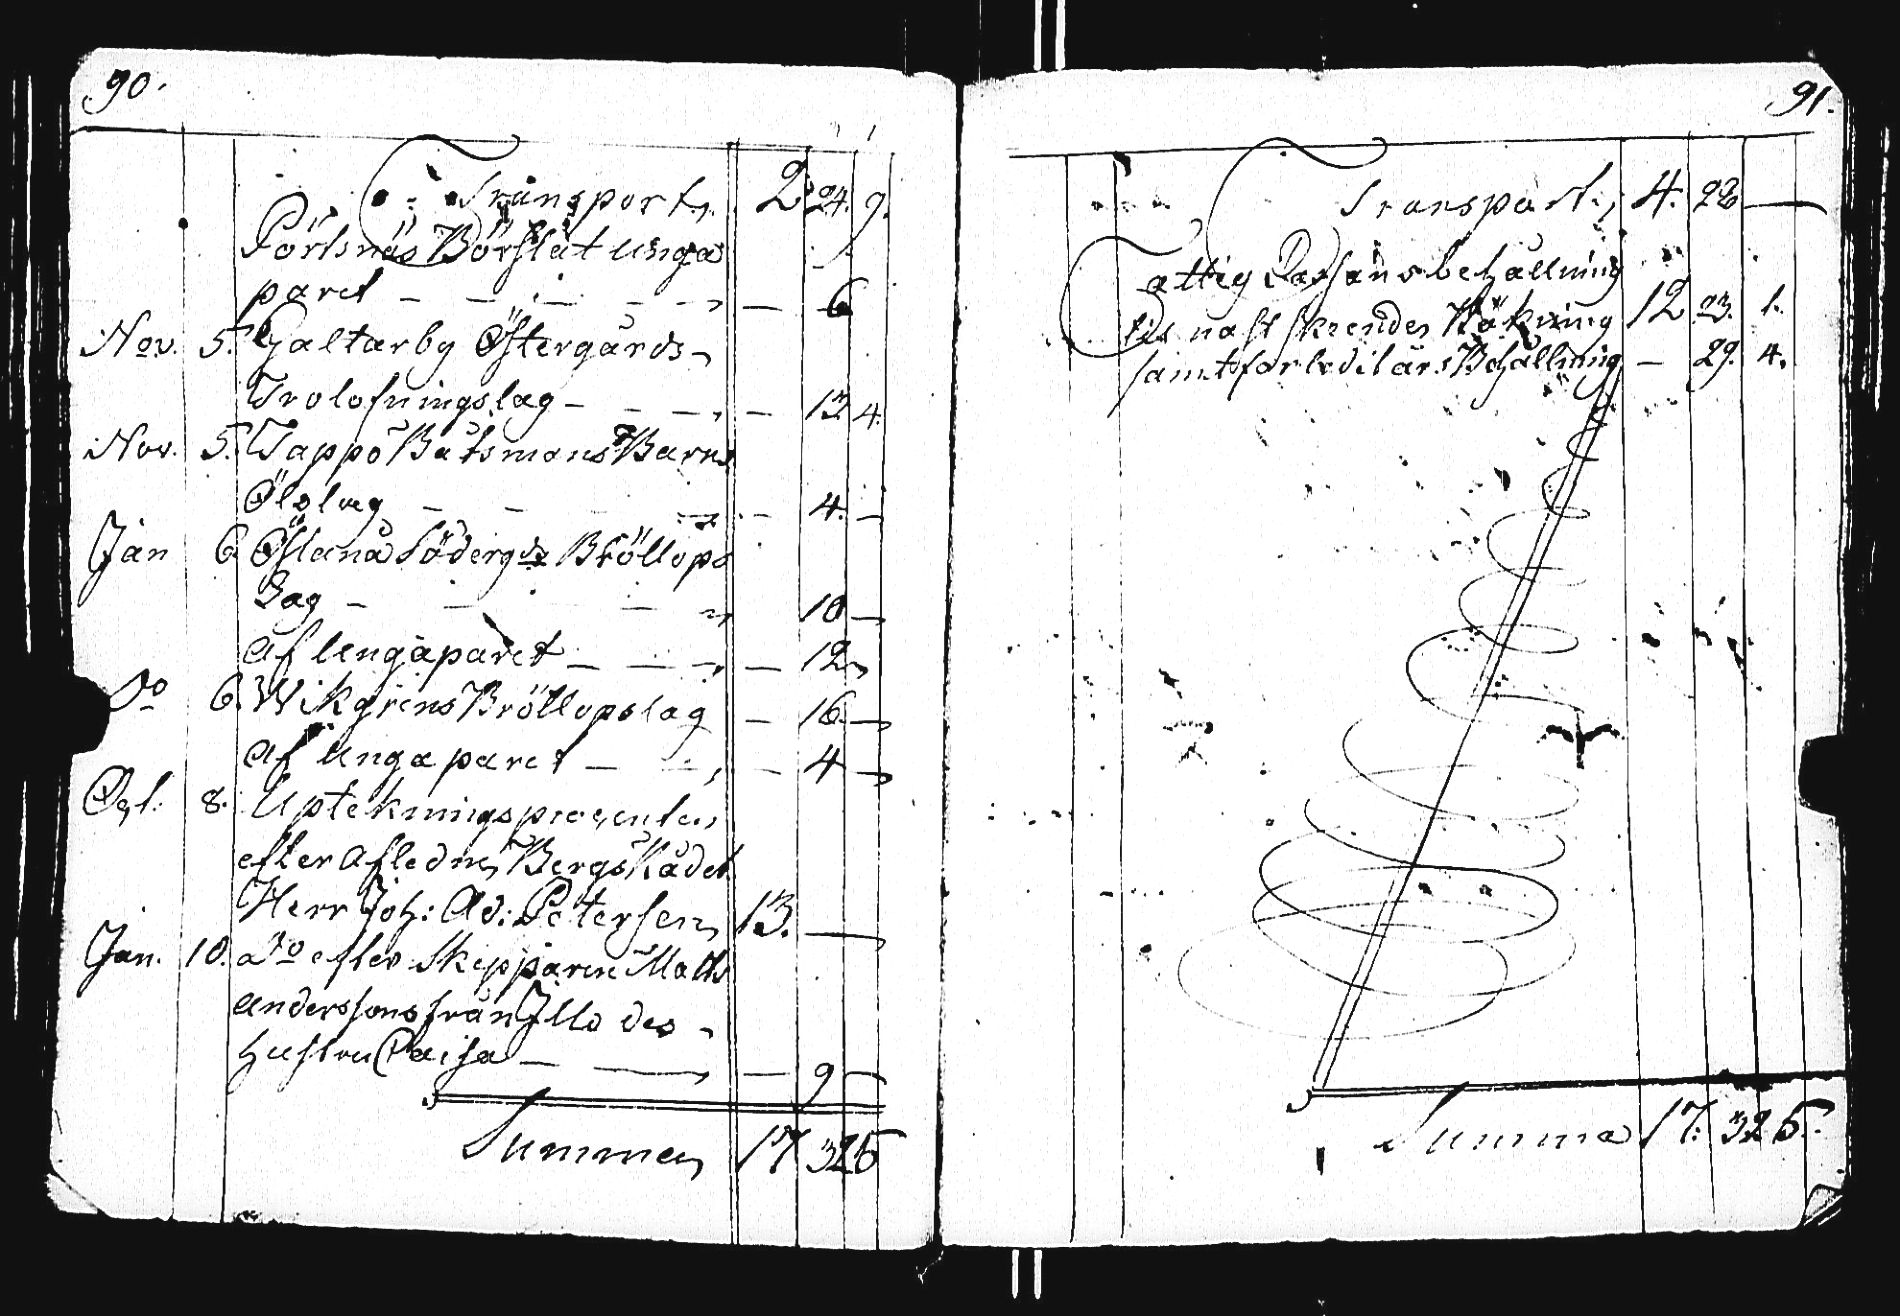 90.
Transport, 2 24. 9.
Pörtsnäs Börslät unga
paret — — — — — 6
Nov. 5. Galtarby Östergårds
Trolofningslag — — — — 13 4.
Nov. 5. Tappo Båtsmans Barns
Ölslag — — — — 4. —
Jan 6. Öslanå Söderg ds Bröllops
Lag — — — — 10 —
af Ungaparet — — — — 12
Do 6. Wikgrens Bröllopslag — 16. —
af Ungaparet — — — — 4 —
8. Uptekningsprocenten
efter Afledne BergsRådet
Herr Joh: Ad: Petersen 13. —
Jan. 10. do efter Skepparen Matts
Anderssons från Illo des
hustru Caisa — — — 9 —
Summa 17 32 5
91.
Transport, 4. 28 —
Fattig Cassans behållning
vid näst skeendes Räkning 12 23. 1.
samt förledit års Behållning — 29. 4.
Summa 17. 32 5.